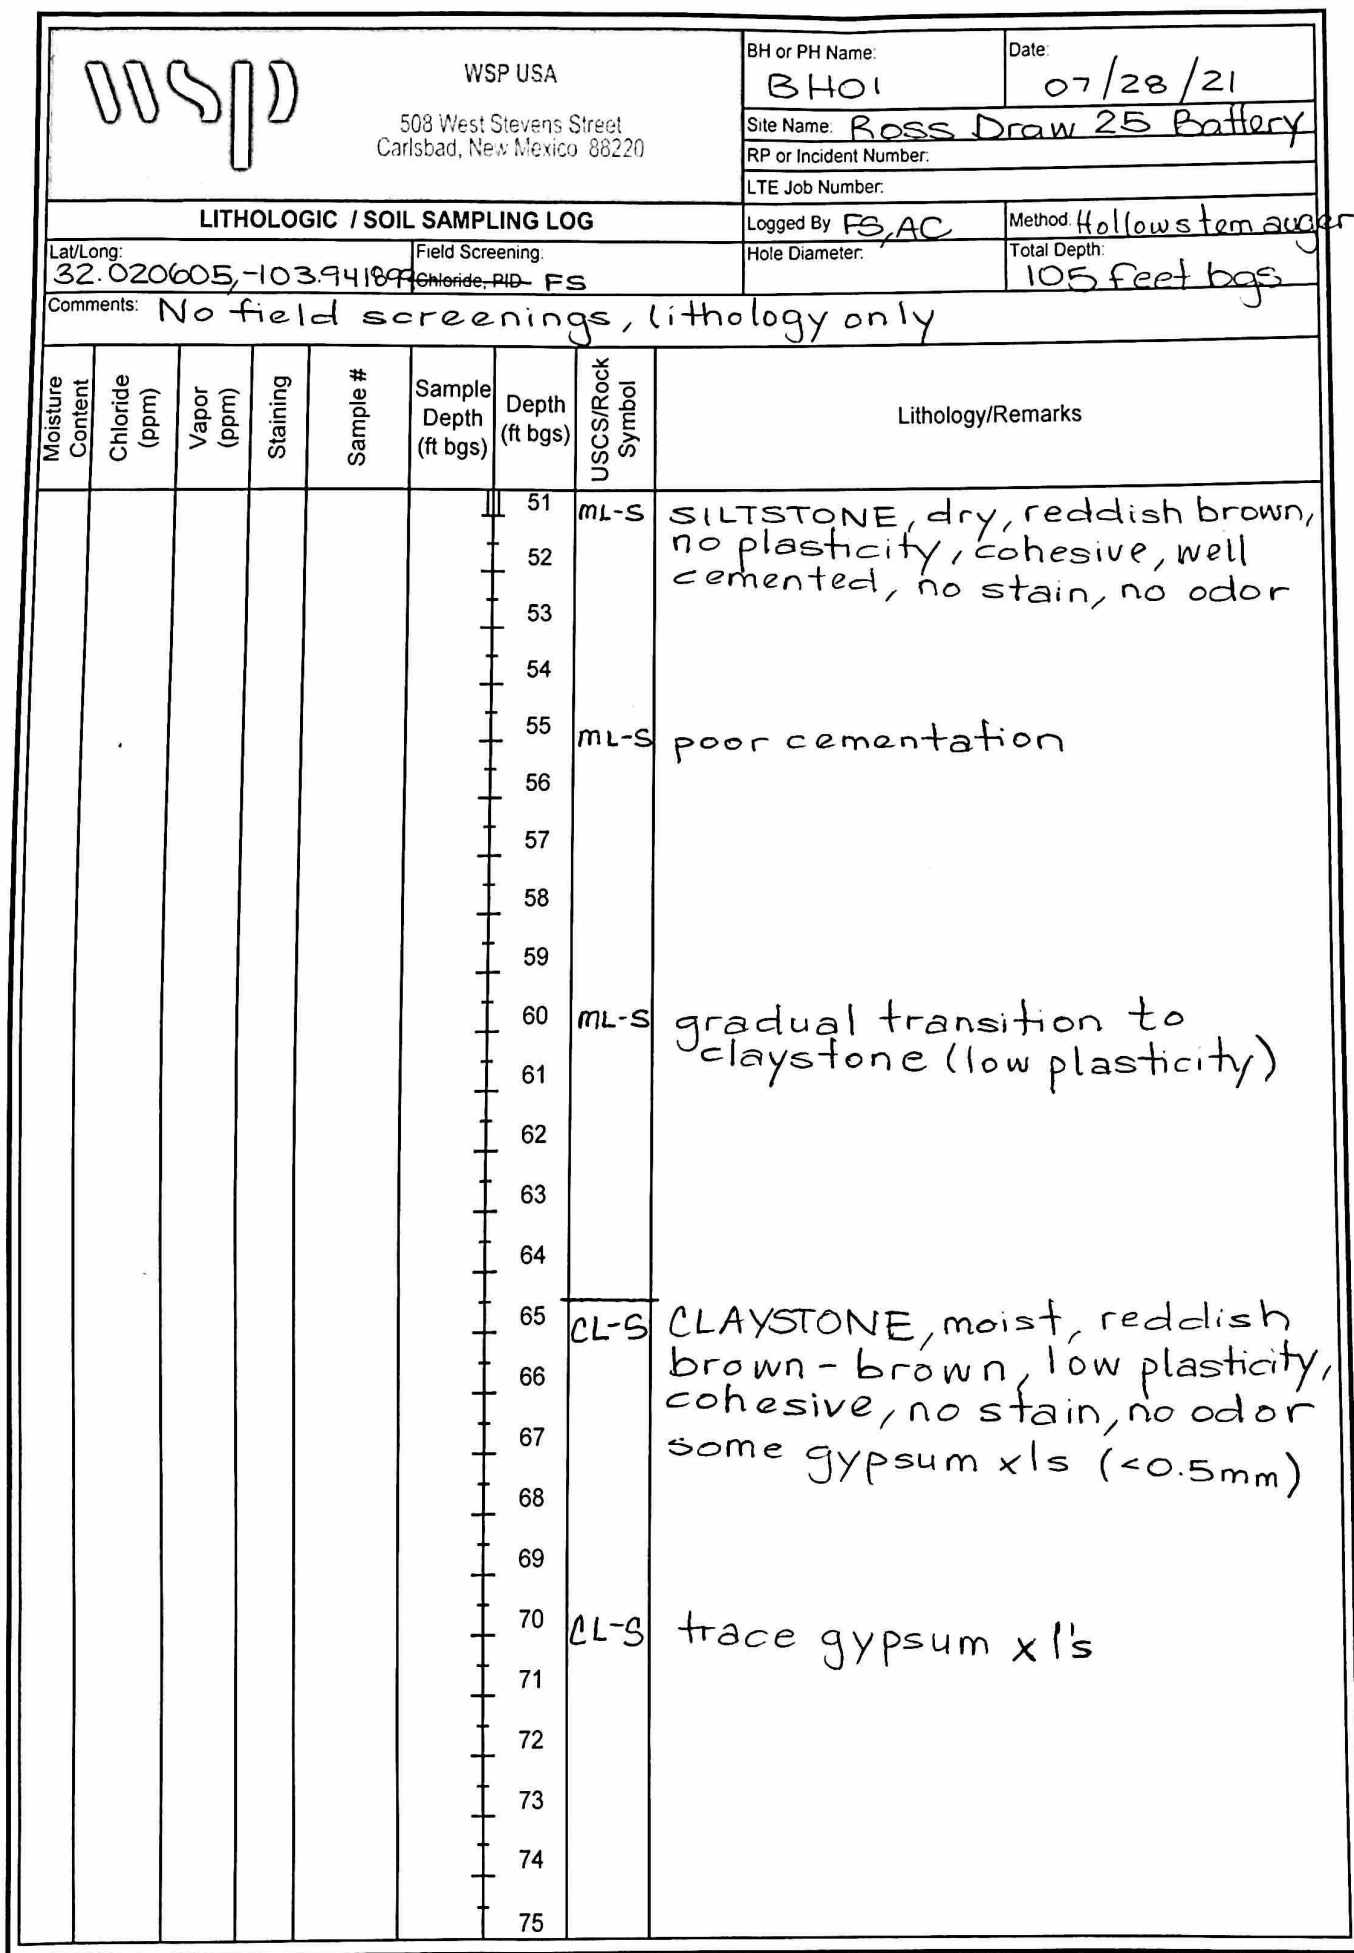 wsp
WSP USA
508 West Stevens Street
Carlsbad, New Mexico 88220
BH or PH Name:
BH01
Date:
07/28/21
Site Name: Ross Draw 25 Battery
RP or Incident Number:
LTE Job Number:
LITHOLOGIC / SOIL SAMPLING LOG
Logged By FS, AC
Method: Hollow stem auger
Lat/Long:
32.020605, -103.941899
Field Screening:
Chloride, PID FS
Hole Diameter:
Total Depth:
105 feet bgs
Comments: No field screenings, lithology only
Moisture
Content
Chloride
(ppm)
Vapor
(ppm)
Staining
Sample #
Sample
Depth
(ft bgs)
Depth
(ft bgs)
USCS/Rock
Symbol
Lithology/Remarks
51 ML-S SILTSTONE, dry, reddish brown,
no plasticity, cohesive, well
52
cemented, no stain, no odor
53
54
55 ML-S poor cementation
56
57
58
59
60 ML-S gradual transition to
claystone (low plasticity)
61
62
63
64
65 CL-S CLAYSTONE, moist, reddish
brown - brown, low plasticity,
66
cohesive, no stain, no odor
67
some gypsum xls (<0.5mm)
68
69
70 CL-S trace gypsum xl's
71
72
73
74
75